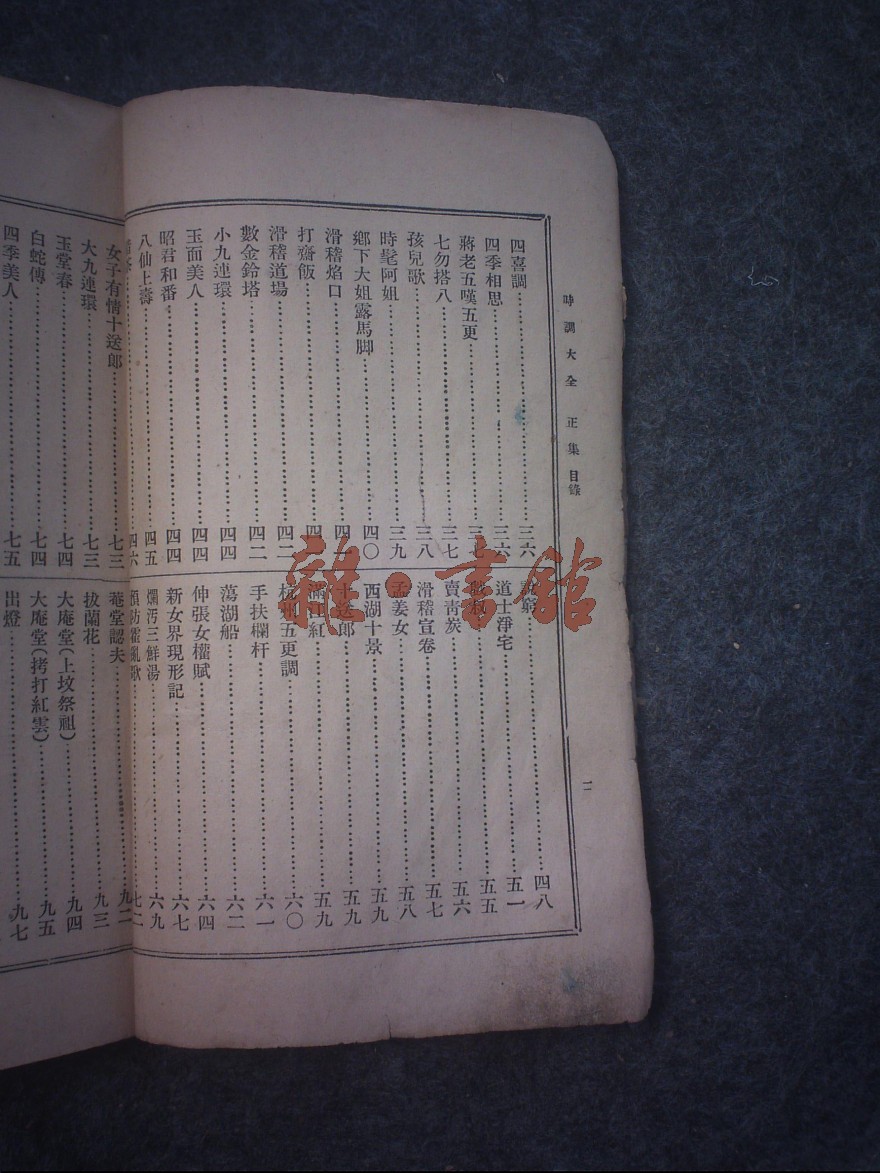 時調大全 正集 目錄
二
四喜調 三六
四季相思 三六
蔣老五嘆五更 三七
七勿搭八 三七
孩兒歌 三八
時髦阿姐 三九
鄉下大姐露馬脚 四〇
滑稽焰口
打齋飯
滑稽道場 四二
數金鈴塔 四二
小九連環 四四
玉面美人 四四
昭君和番 四四
八仙上壽 四五
四六
四八
道士淨宅 五一
五五
賣青炭 五六
滑稽宣卷 五七
孟姜女 五八
西湖十景 五九
十送郎 五九
滿江紅 五九
杭州五更調 六〇
手扶欄杆 六一
蕩湖船 六二
伸張女權賦 六四
新女界現形記 六七
爛污三鮮湯 六九
預防霍亂歌 七二
女子有情十送郎 七三
大九連環 七三
玉堂春 七四
白蛇傳 七四
四季美人 七五
菴堂認夫 九二
拔蘭花 九三
大庵堂(上坟祭祖) 九四
大庵堂(拷打紅雲) 九五
出燈 九七
雜·書館